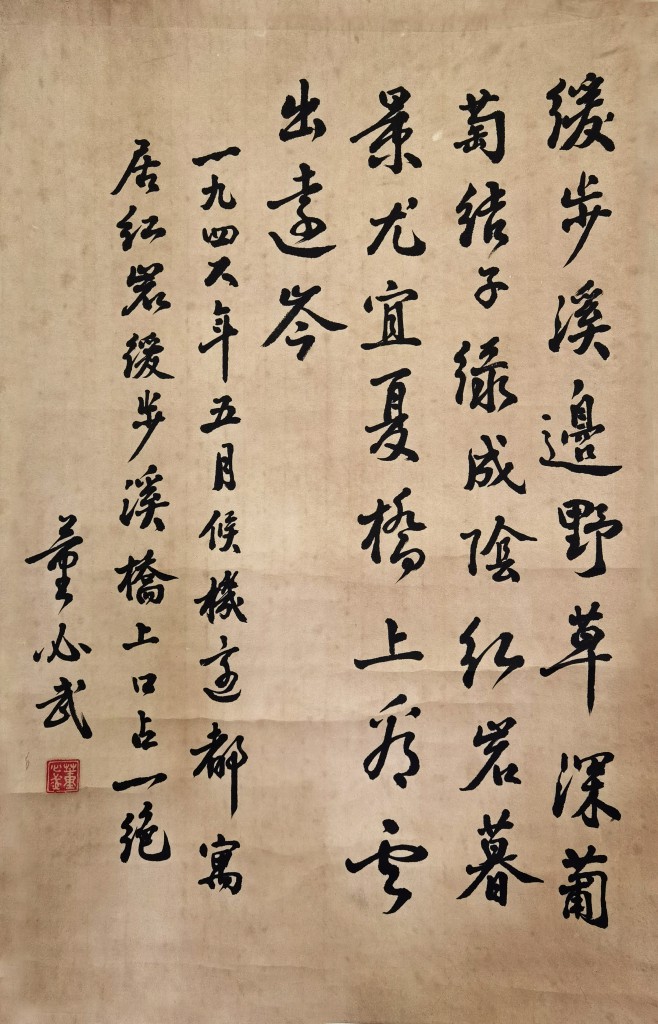 緩步溪邊野草深葡
萄結子綠成陰紅岩暮
景尤宜夏橋上看雲
出遠岑
一九四六年五月候機還都寓
居紅岩緩步溪橋上口占一絕
董必武
董必武